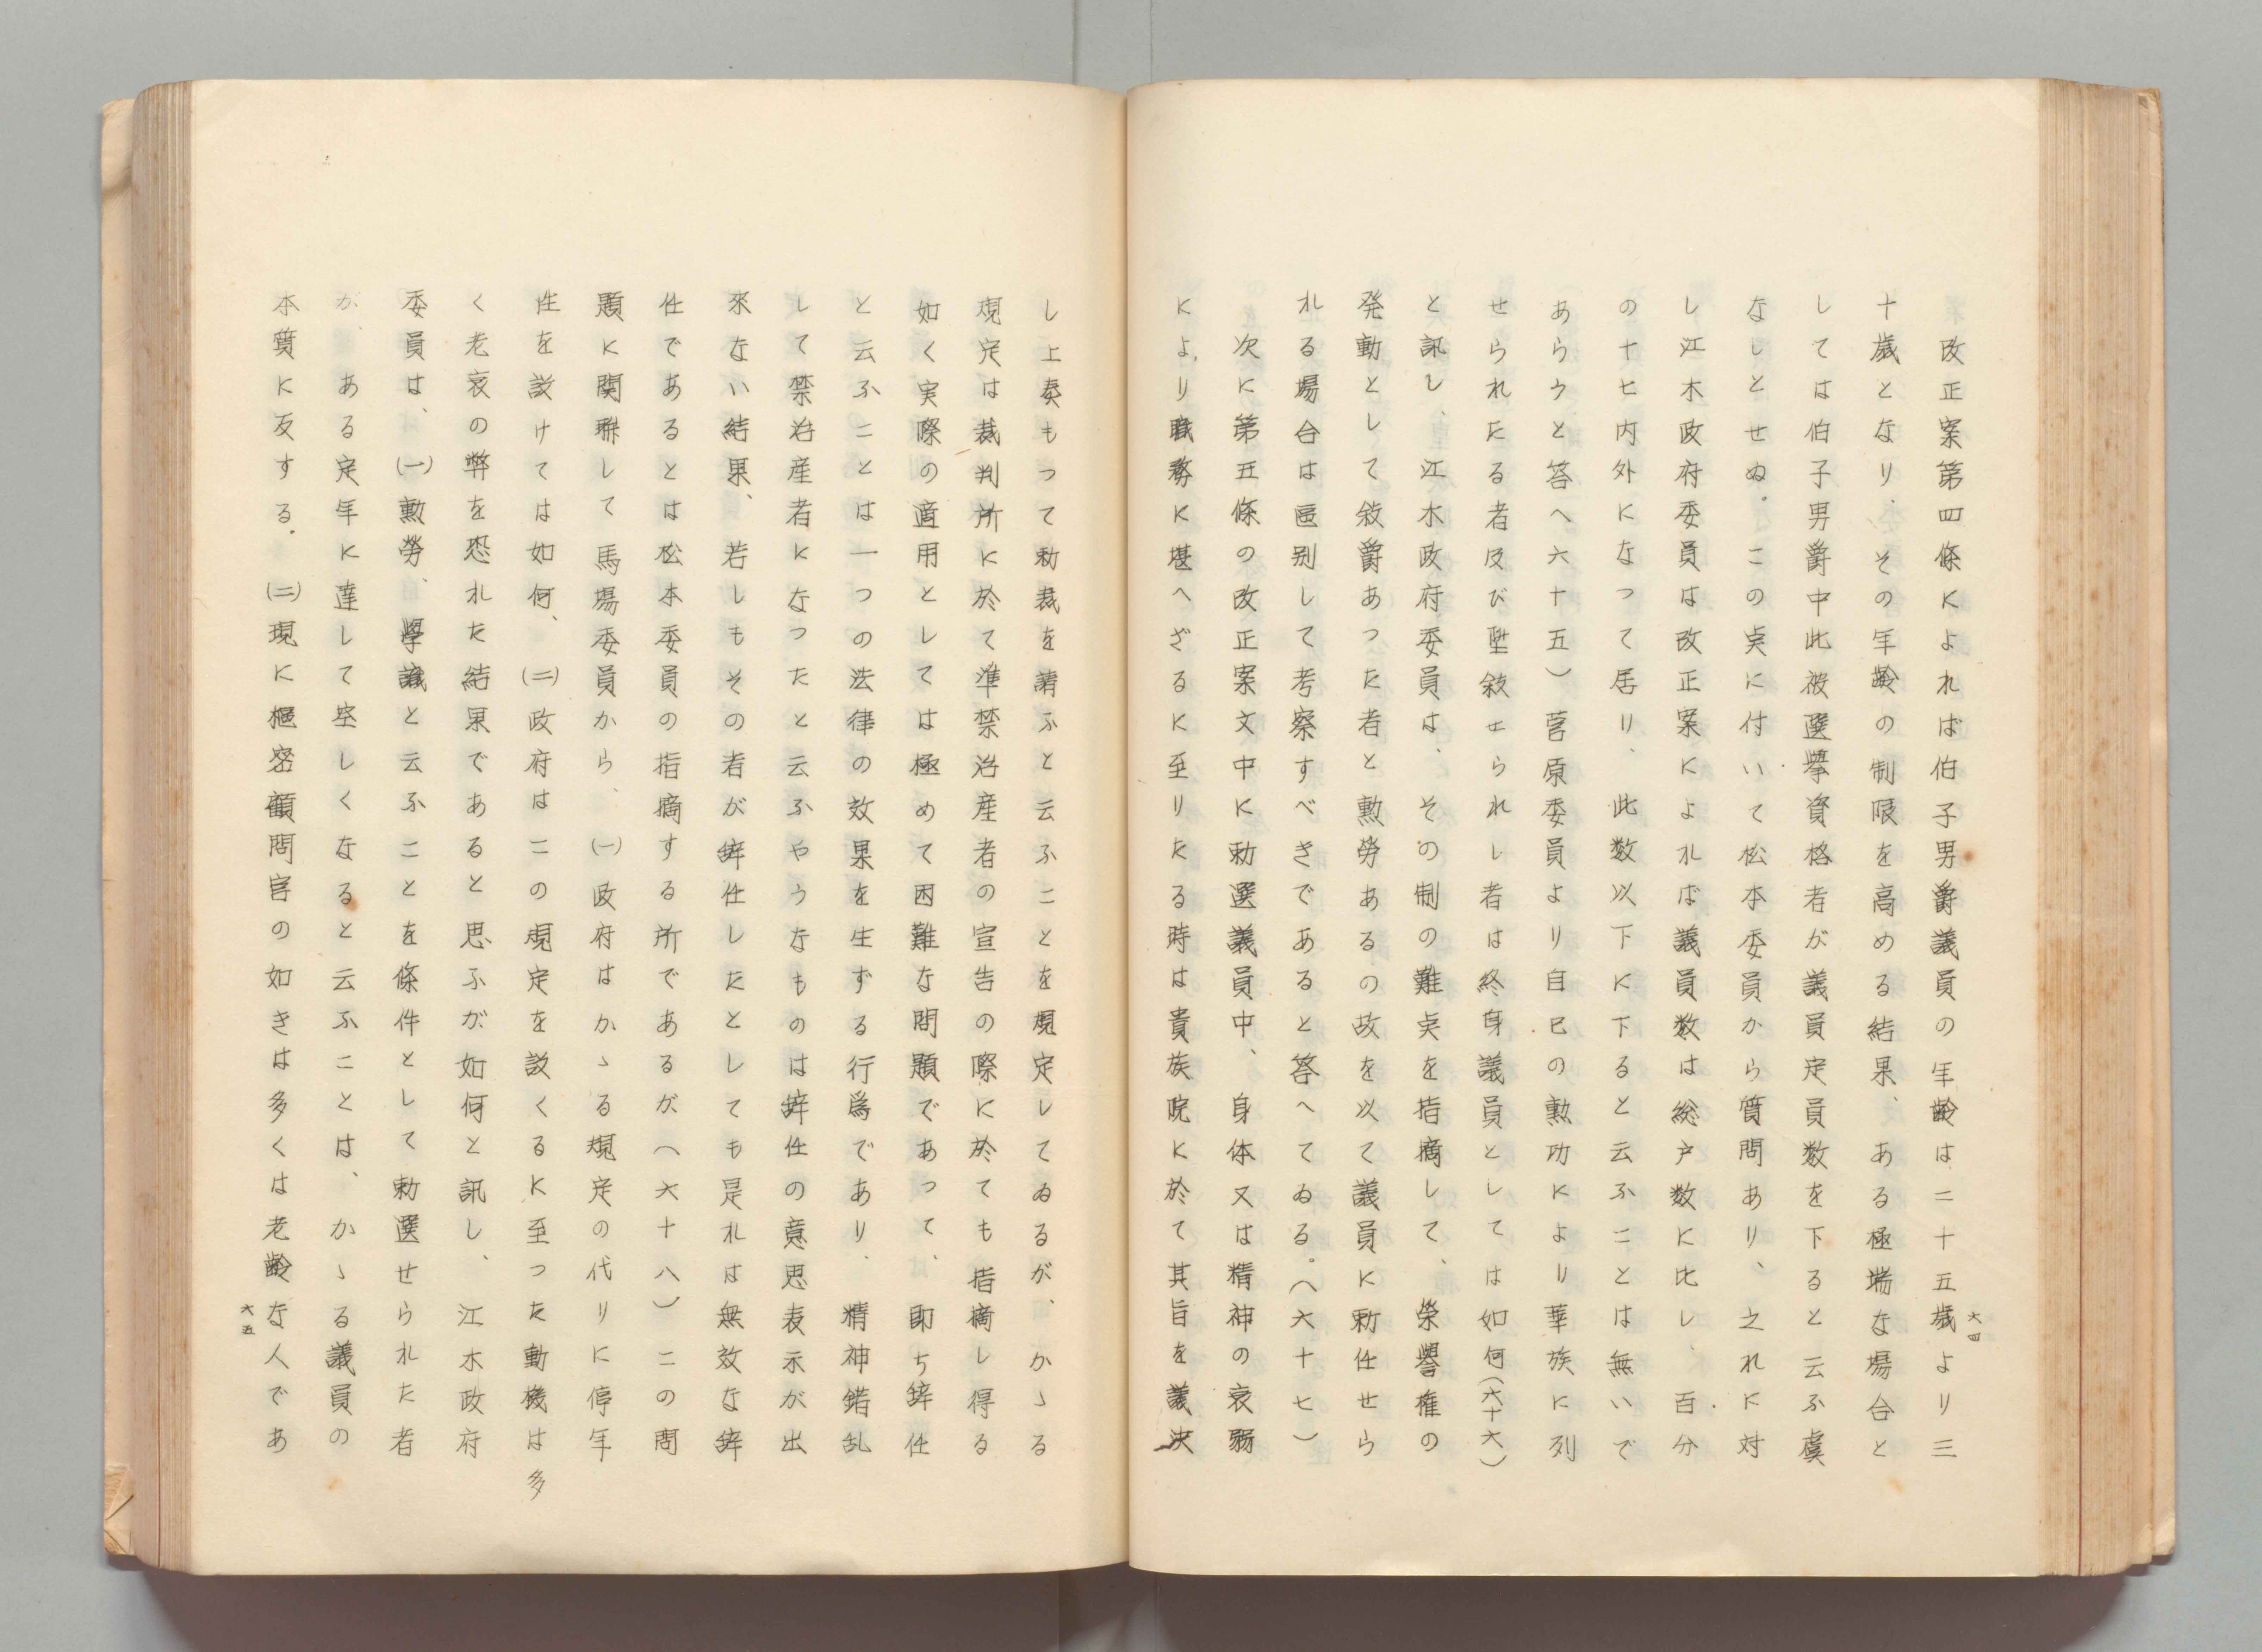 改正案第四條によれば伯子男爵議員の年齢は二十五歳より三
十歳となり、その年齢の制限を高める結果、ある極端な場合と
しては伯子男爵中此被選擧資格者が議員定員数を下ると云ふ虞
なしとせぬ。この点に付いて松本委員から質問あり、之れに対
し江木政府委員は改正案によれば議員数は総戸数に比し、百分
の十七内外になつて居り、此数以下に下ると云ふことは無いで
あらうと答へ六十五）菅原委員より自己の勲功により華族に列
せられたる者及び陞敍せられし者は終身議員としては如何（六十六）
と訊し、江木政府委員は、その制の難点を指摘して、榮譽権の
発動として敍爵あつた者と勲勞あるの故を以て議員に勅任せら
れる場合は區別して考察すべきであると答へてゐる。（六十七）
次に第五條の改正案文中に勅選議員中、身体又は精神の衰弱
により職務に堪へざるに至りたる時は貴族院に於て其旨を議決
六四
し上奏もつて勅裁を請ふと云ふことを規定してゐるが、かゝる
規定は裁判所に於て準禁治産者の宣告の際に於ても指摘し得る
如く実際の適用としては極めて困難な問題であつて、即ち辞任
と云ふことは一つの法律の效果を生ずる行爲であり、精神錯乱
して禁治産者になつたと云ふやうなものは辞任の意思表示が出
來ない結果、若しもその者が辞任したとしても是れは無效な辞
任であるとは松本委員の指摘する所であるが（六十八）この問
題に関聨して馬場委員から、㈠政府はかゝる規定の代りに停年
性を設けては如何、㈡政府はこの規定を設くるに至つた動機は多
く老衰の弊を恐れた結果であると思ふが如何と訊し、江木政府
委員は、㈠勲勞、學識と云ふことを條件として勅選せられた者
が、ある定年に達して空しくなると云ふことは、かゝる議員の
本質に反する。㈡現に樞密顧問官の如きは多くは老齢な人であ
六五